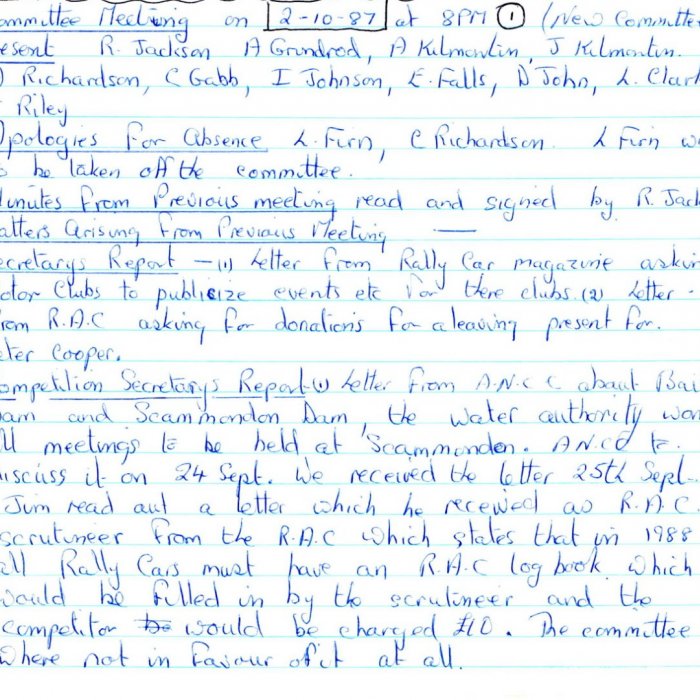 ommittee Meeting on 2-10-87 at 8PM 1 (New Committe
esent R. Jackson A Grundrod, A Kilmontin, J Kilmontin.
) Richardson, C Gabb, I Johnson, E. Falls, D John, L. Clark
Riley
pologies for absence L. Firn, C Richardson. L Firn w
be taken off the committee.
inutes from Previous meeting read and signed by R. Jack
atters arising from Previous Meeting —
ecretarys Report - (1) Letter from Rally Car magazine askin
otor Clubs to publicize events etc for there clubs. (2) Letter -
rom R.A.C asking for donations for a leaving present for.
eter Cooper.
ompetition Secretarys Report (1) Letter from A.N.C C about Bai
am and Scammondon Dam, the water authority wan
ll meetings to be held at Scammonden. A.N.CC to.
iscuss it on 24 Sept. We received the letter 25th Sept.
Jim read out a letter which he received as R.A.C.
scrutineer from the R.A.C which states that in 1988
all Rally Cars must have an R.A.C log book which
would be filled in by the scrutineer and the
competitor would be charged £10. The committee
where not in favour of it at all.